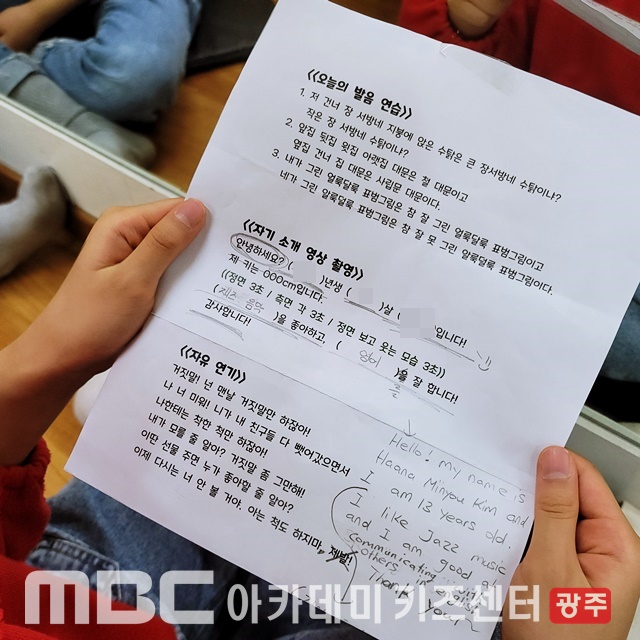 《오늘의 발음 연습》
1. 저 건너 장 서방네 지붕에 앉은 수탉은 큰 장서방네 수탉이냐?
작은 장 서방네 수탉이냐?
2. 앞집 뒷집 윗집 아랫집 대문은 철 대문이고
옆집 건너 집 대문은 사립문 대문이다.
3. 내가 그린 얼룩달룩 표범그림은 참 잘 그린 얼룩달룩 표범그림이고
네가 그린 얼룩달룩 표범그림은 참 잘 못 그린 얼룩달룩 표범그림이다.
《자기 소개 영상 촬영》
안녕하세요? ( )년생 ( )살 ( )입니다!
제 키는 000cm입니다.
((정면 3초 / 측면 각 3초 / 정면 보고 웃는 모습 3초))
(재즈 음악 )을 좋아하고, ( 영어 )을 잘 합니다!
를
감사합니다!
《자유 연기》
거짓말! 넌 맨날 거짓말만 하잖아!
나 너 미워! 니가 내 친구들 다 뺏어갔으면서
나한테는 착한 척만 하잖아!
내가 모를 줄 알아? 거짓말 좀 그만해!
이딴 선물 주면 누가 좋아할 줄 알아?
이제 다시는 너 안 볼 거야. 아는 척도 하지마. 제발!
Hello! my name is
Haana Minyou Kim and
I am 13 years old.
I like Jazz music
and I am good at
communicating with
others.
Thank you~
MBC 아카데미 키즈센터 광주